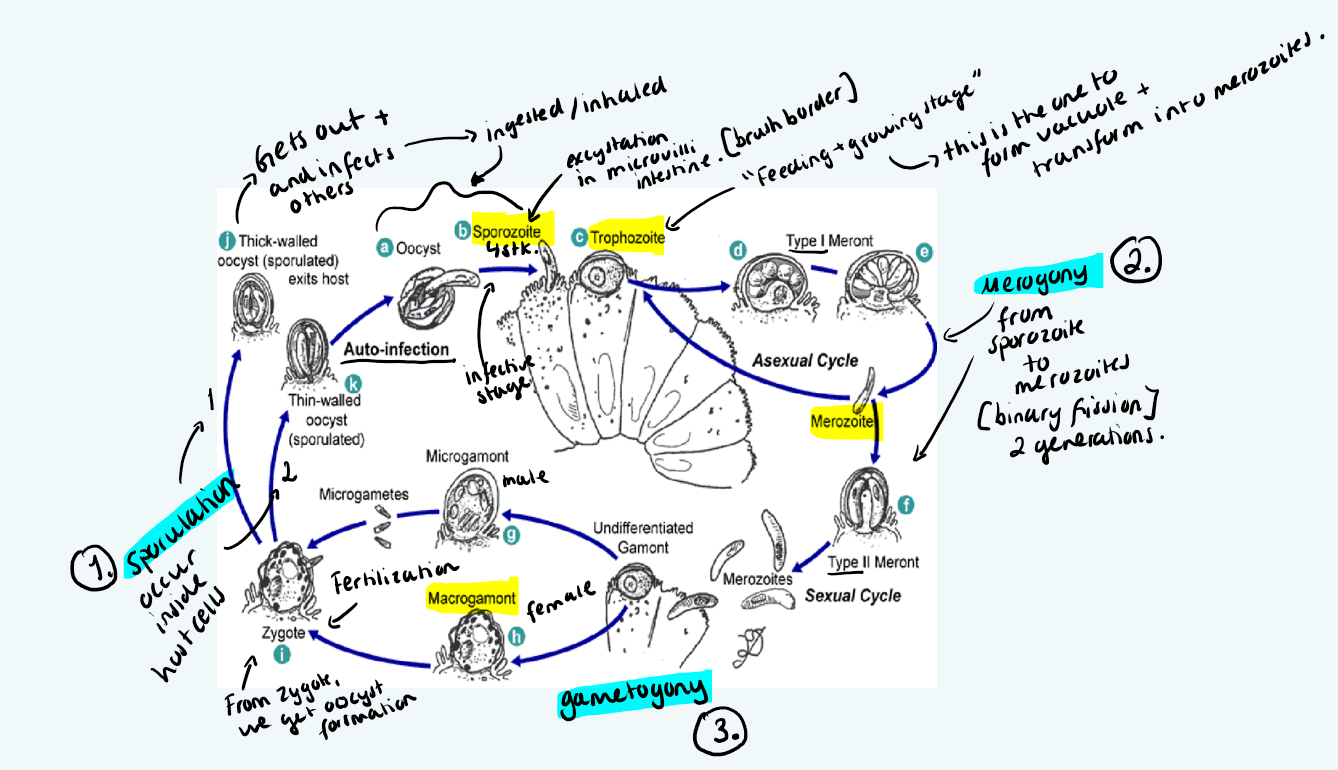 Gets out +
and infects
others
ingested/inhaled
excystation
in microvilli
intestine. [brush border]
"Feeding + growing stage"
this is the one to
form vacuole +
transform into merozoites.
j Thick-walled
oocyst (sporulated)
exits host
a Oocyst
b Sporozoite
4stk.
c Trophozoite
d
Type I Meront
e
merogony
2.
from
sporozoite
to
merozoites
[binary fission]
2 generations.
Auto-infection
k
Thin-walled
oocyst
(sporulated)
infective
stage
Asexual Cycle
Merozoite
1
2
1.
sporulation
occur
inside
host cells
Microgamont
male
Microgametes
g
Undifferentiated
Gamont
f
Type II Meront
Merozoites
Sexual Cycle
Fertilization
Macrogamont
female
h
Zygote
i
From zygote,
we get oocyst
formation
gametogony
3.